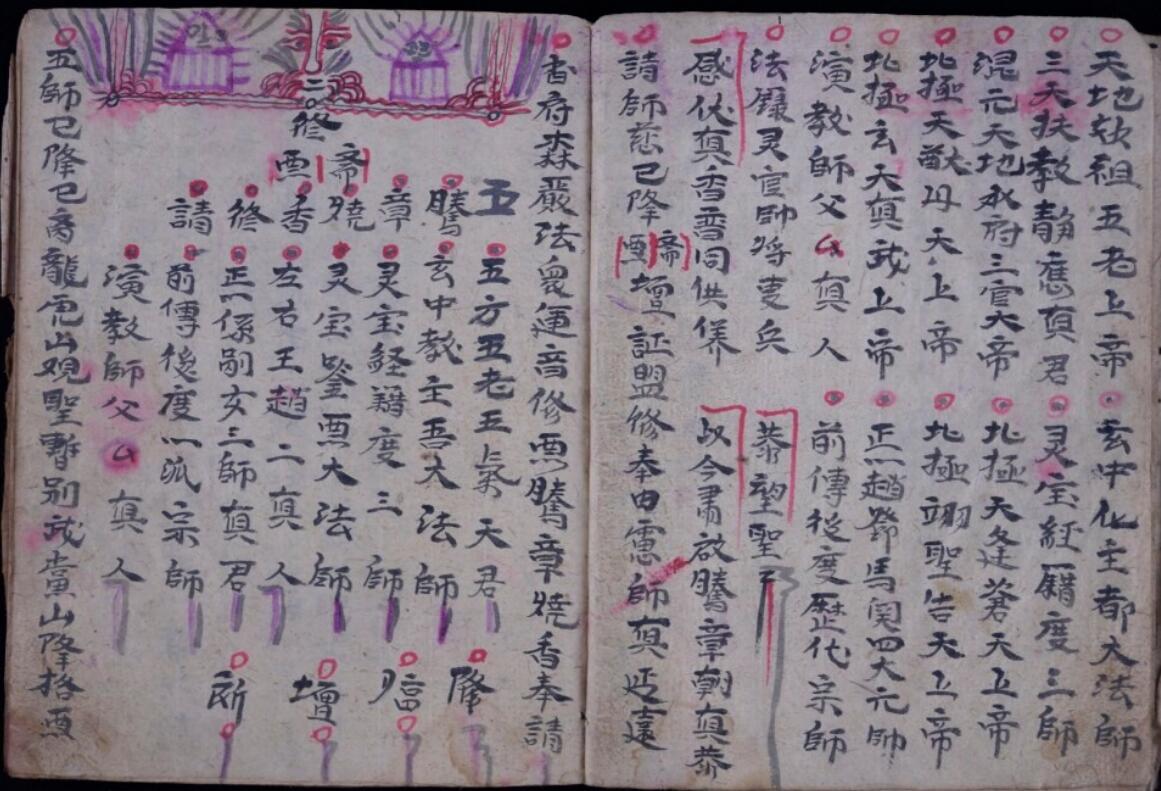 天地欽祖五老上帝
玄中化主都大法師
三天扶教静應真君
灵宝經籍度三師
混元天地水府三官大帝
北極天蓬蒼天上帝
北極天猷丹天上帝
北極翊聖告天上帝
北極玄天真武上帝
正一趙鄧馬関四大元帥
演教師父厶真人
前傳後度歷代宗師
法籙灵官帥将吏兵
恭望聖
感伏真香普同供养
以今肅啟騰章朝真恭
請師慈已降
斋
壇証盟修奉由慮師真延遠
香府森嚴法衆運音修
騰章燒香奉請
五
五方五老五炁天君
騰
玄中教主吾大法師
章
灵宝経籍度三師
斋
燒
灵宝鑒
大法師
香
左右王趙二真人
二修
修
正一係嗣女三師真君
請
前傳後度一派宗師
演教師父厶真人
降
臨
壇
所
五師已降已离龍虎山观聖暫别武當山降格